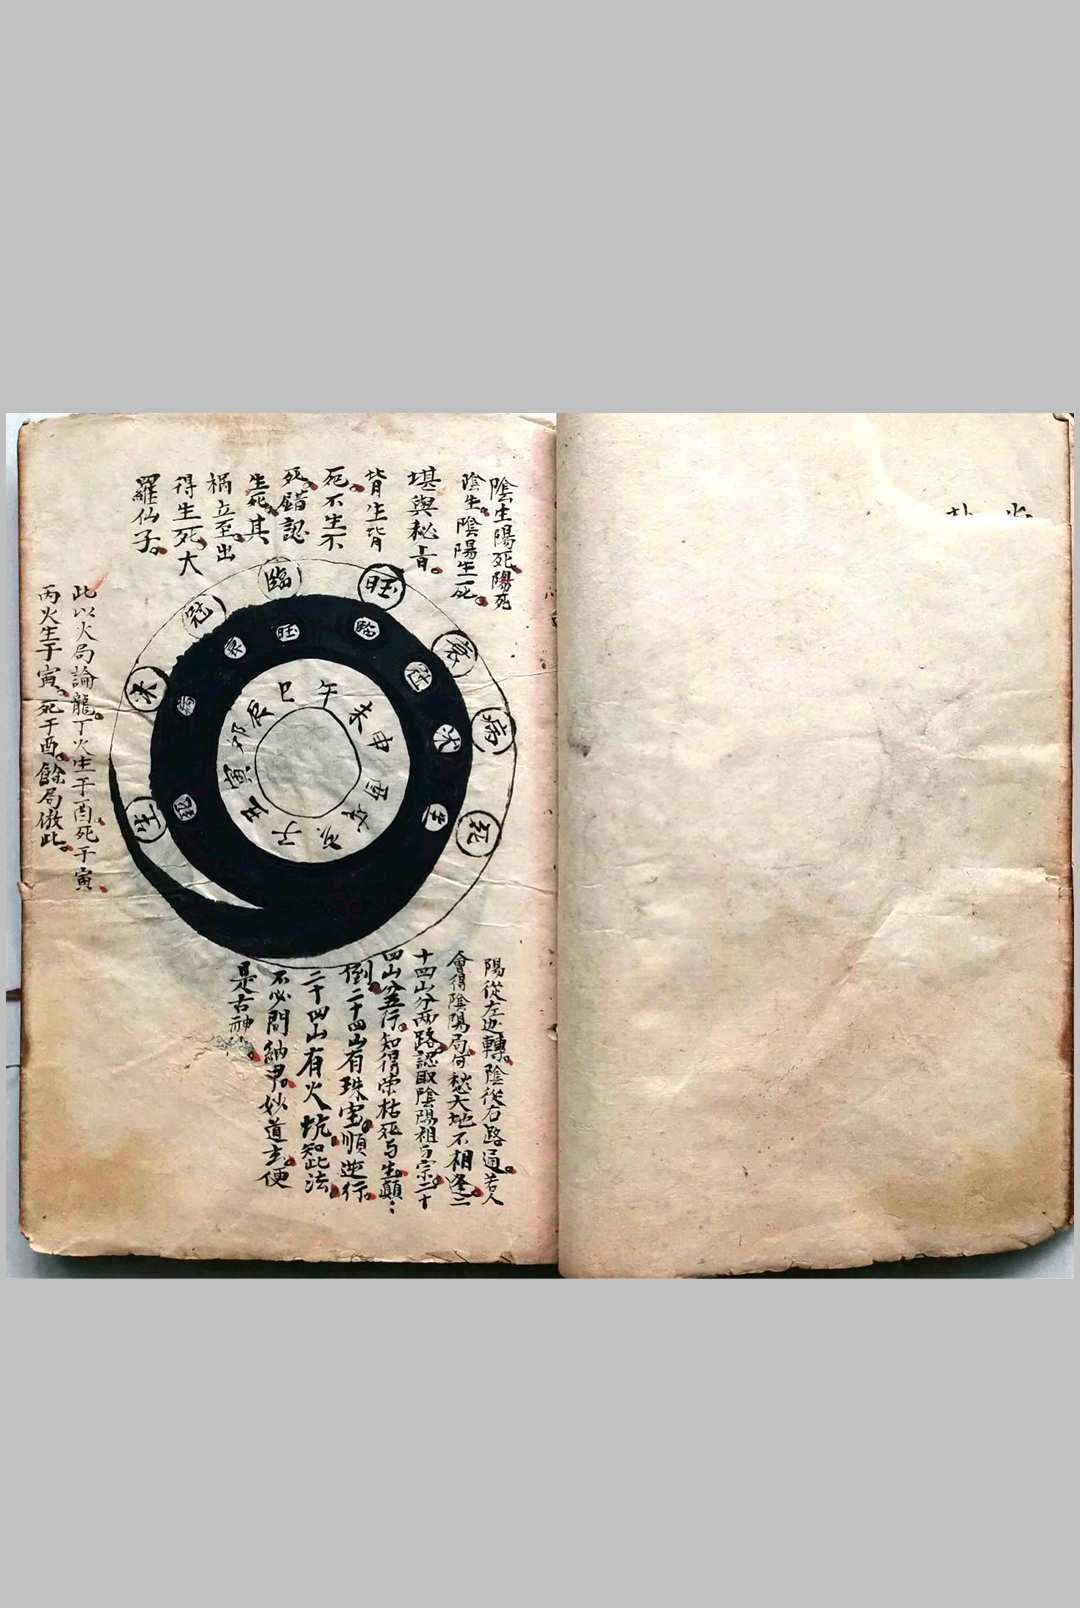 陰生陽死陽死
陰生陰陽生死
堪與秘旨
皆生皆
死不生不
死錯認
生死其
禍立至出
得生死大
羅仙子
臨
旺
冠
衰
沐
病
生
死
旺
臨
衰
冠
病
沐
死
生
子
丑
寅
卯
辰
巳
午
未
申
酉
戌
亥
此以火局論龍丁火生于酉死于寅
丙火生于寅死于酉餘局倣此
陽從左边轉陰從右路通若人
會得陰陽局何愁天地不相逢二
十四山分兩路認取陰陽祖与宗二十
四山分五行知得荣枯死与生顛
倒二十四山有珠宝順逆行
二十四山有火坑知此法
不必問納甲妙道玄便
是古神